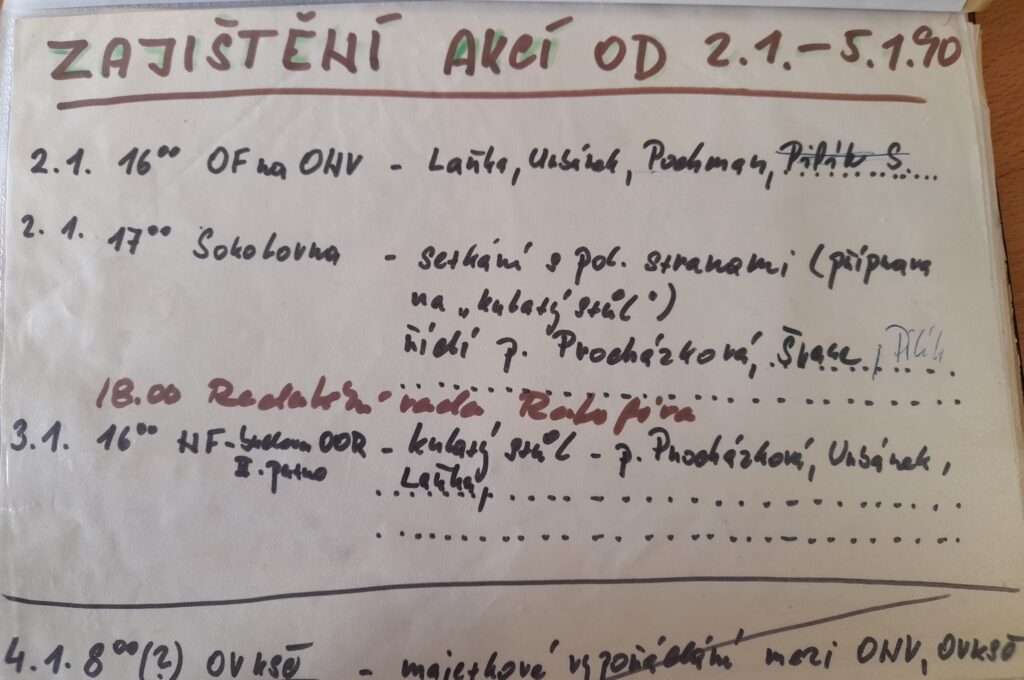 ZAJIŠTĚNÍ AKCÍ OD 2.1.-5.1.90
2.1. 16⁰⁰ OF na ONV - Laňka, Urbánek, Pochman, Pilík S.
2.1. 17⁰⁰ Sokolovna - setkání s pol. stranami (příprava
na „kulatý stůl")
řídí p. Procházková, Švanc, Pilík
18.00 Redakční rada Rakopíra
3.1. 16⁰⁰ NF- OOR - kulatý stůl - p. Procházková, Urbánek,
II. patro Laňka,
4.1. 8⁰⁰(?) OVKSČ - majetkové vypořádání mezi ONV, OVKSČ